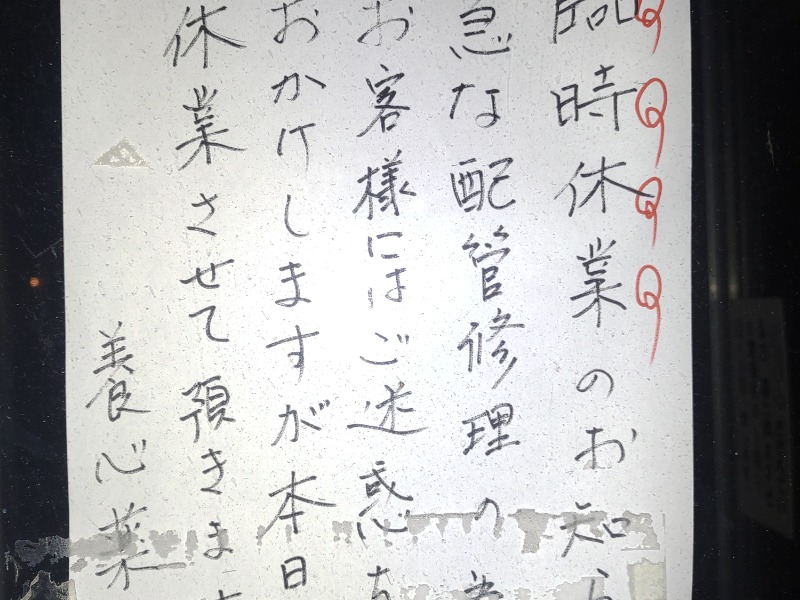 臨時休業のお知ら
急な配管修理の為
お客様にはご迷惑を
おかけしますが本日
休業させて頂きます
養心薬